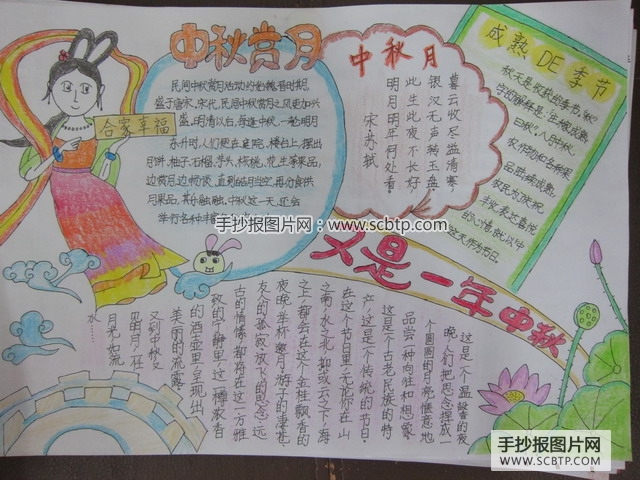 中秋赏月
合家幸福
民间中秋赏月活动约始魏晋时期,
盛于唐宋。宋代,民间中秋赏月之风更加兴
盛。明清以后,每逢中秋,一轮明月
东升时,人们便在庭院、楼台上,摆出
月饼、柚子、石榴、芋头、核桃、花生等果品,
边赏月,边畅谈,直到皓月当空,再分食供
月果品,其乐融融。中秋这一天,还会
举行各种丰富
中秋月
暮云收尽溢清寒,
银汉无声转玉盘。
此生此夜不长好,
明月明年何处看。
宋·苏轼
成熟DE季节
秋天是收获的季节。"秋"
字的解释是:"庄稼成熟
曰秋"。八月中秋,
农作物和各种果
品陆续成熟,
农民为了庆祝
丰收,表达喜悦
的心情,就以中
秋这天作为节日。
又是一年中秋
这是一个温馨的夜
晚,人们把思念揉成一
个圆圆的月亮,惬意地
品尝一种向往和想象。
这是个古老民族的特
产,这是个传统的节日。
在这个节日里,无论你在山
之南,水之北,抑或云之下,海
之上,都会在这个金桂飘香的
夜晚,举杯邀月,游子的凄苦,
友人的孤寂,放飞的思念,远
古的情怀,都将在这一方雅
致的宁静里,这一樽浓香
的酒盅里,呈现出
美丽的流露。
又到中秋,又
见明月。在
月光如流
水
手抄报图片网:www.scbtp.com
手抄报图片网
WWW.SCBTP.COM